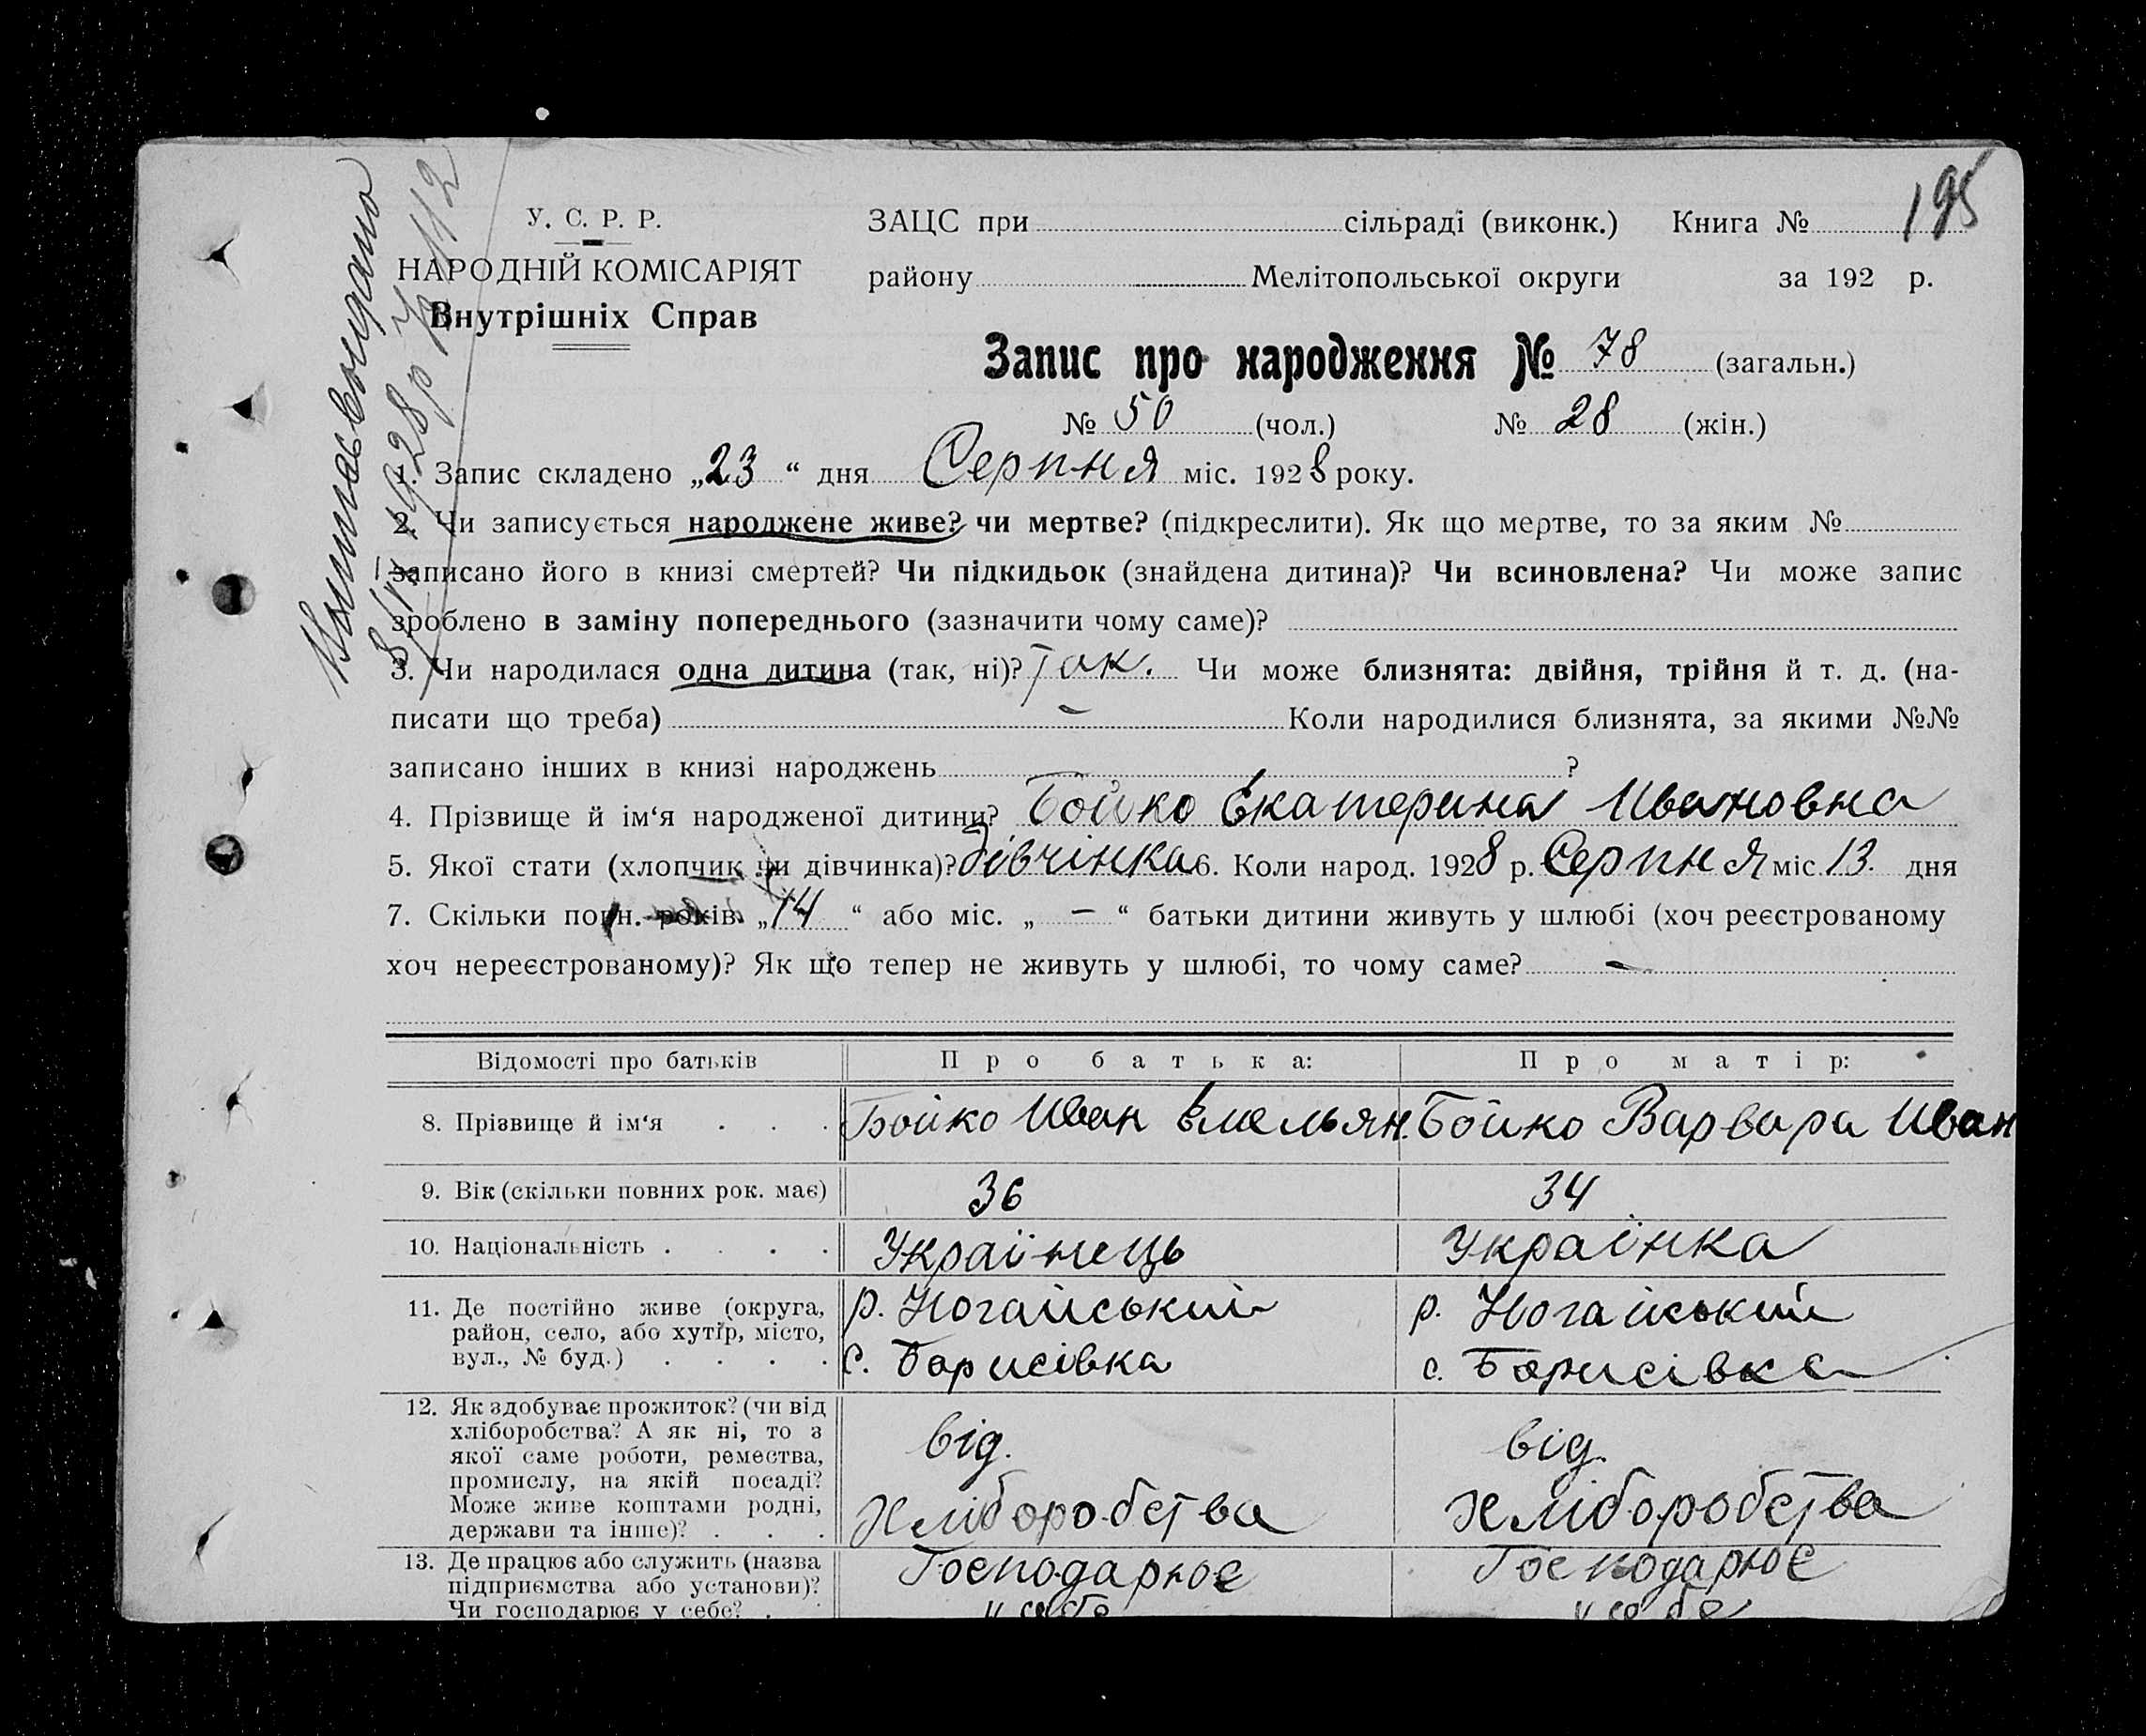 195
У. С. Р. Р.
НАРОДНІЙ КОМІСАРІЯТ
Внутрішніх Справ
ЗАЦС при сільраді (виконк.) Книга №
району Мелітопольської округи за 192 р.
Запис про народження № 78 (загальн.)
№ 50 (чол.) № 28 (жін.)
1. Запис складено „23“ дня Серпня міс. 1928 року.
2. Чи записується народжене живе? чи мертве? (підкреслити). Як що мертве, то за яким №
записано його в книзі смертей? Чи підкидьок (знайдена дитина)? Чи всиновлена? Чи може запис
зроблено в заміну попереднього (зазначити чому саме)?
3. Чи народилася одна дитина (так, ні)? Так. Чи може близнята: двійня, трійня й т. д. (на-
писати що треба) – Коли народилися близнята, за якими №№
записано інших в книзі народжень ?
4. Прізвище й ім‘я народженої дитини? Бойко Екатерина Ивановна
5. Якої стати (хлопчик чи дівчинка)? дівчінка 6. Коли народ. 1928 р. Серпня міс. 13. дня
7. Скільки повн. років „14“ або міс. „–“ батьки дитини живуть у шлюбі (хоч реєстрованому
хоч нереєстрованому)? Як що тепер не живуть у шлюбі, то чому саме? –
Відомості про батьків Про батька: Про матір:
8. Прізвище й ім‘я Бойко Иван Емельян. Бойко Варвара Иван
9. Вік (скільки повних рок. має) 36 34
10. Національність Українець Українка
11. Де постійно живе (округа, р. Ногайський р. Ногайський
район, село, або хутір, місто,
вул., № буд.) с. Борисівка с. Борисівка
12. Як здобуває прожиток? (чи від
хліборобства? А як ні, то з від. від.
якої саме роботи, ремества,
промислу, на якій посаді?
Може живе коштами родні, Хліборобства Хліборобства
держави та інше)?
13. Де працює або служить (назва Господарює Господарює
підприємства або установи)?
Чи господарює у себе? у себе у себе